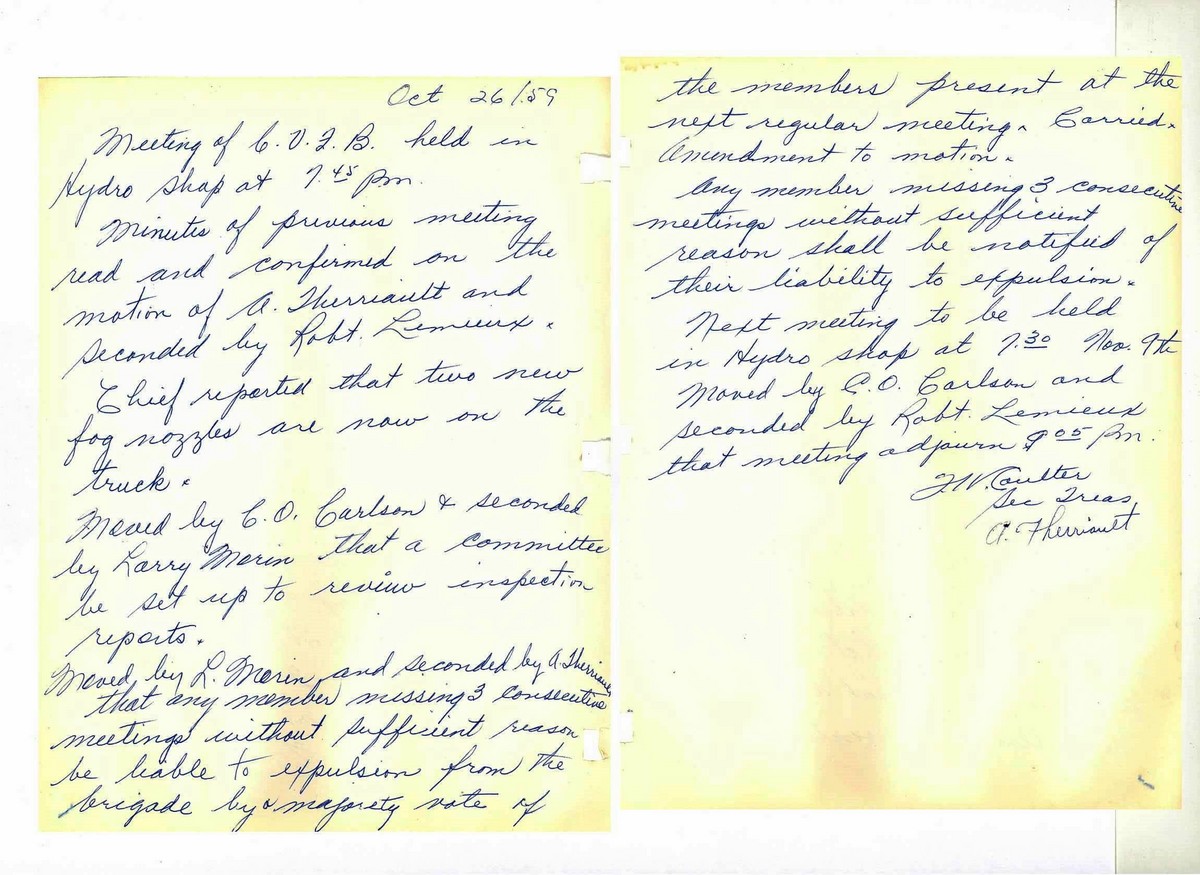 Oct 26/59
Meeting of C.V.F.B. held in
Hydro shop at 7.45 pm.
Minutes of previous meeting
read and confirmed on the
motion of A. Therriault and
seconded by Robt. Lemieux.
Chief reported that two new
fog nozzles are now on the
truck.
Moved by C.O. Carlson & seconded
by Larry Morin that a committee
be set up to review inspection
reports.
Moved by L. Morin and seconded by A. Therriault
that any member missing 3 consecutive
meetings without sufficient reason
be liable to expulsion from the
brigade by a majorety vote of
the members present at the
next regular meeting. Carried.
Amendment to motion.
Any member missing 3 consecutive
meetings without sufficient
reason shall be notified of
their liability to expulsion.
Next meeting to be held
in Hydro shop at 7.30 Nov. 9th
Moved by C.O. Carlson and
seconded by Robt. Lemieux
that meeting adjourn 9 05 pm.
F.W. Coulter
Sec Treas
A. Therriault